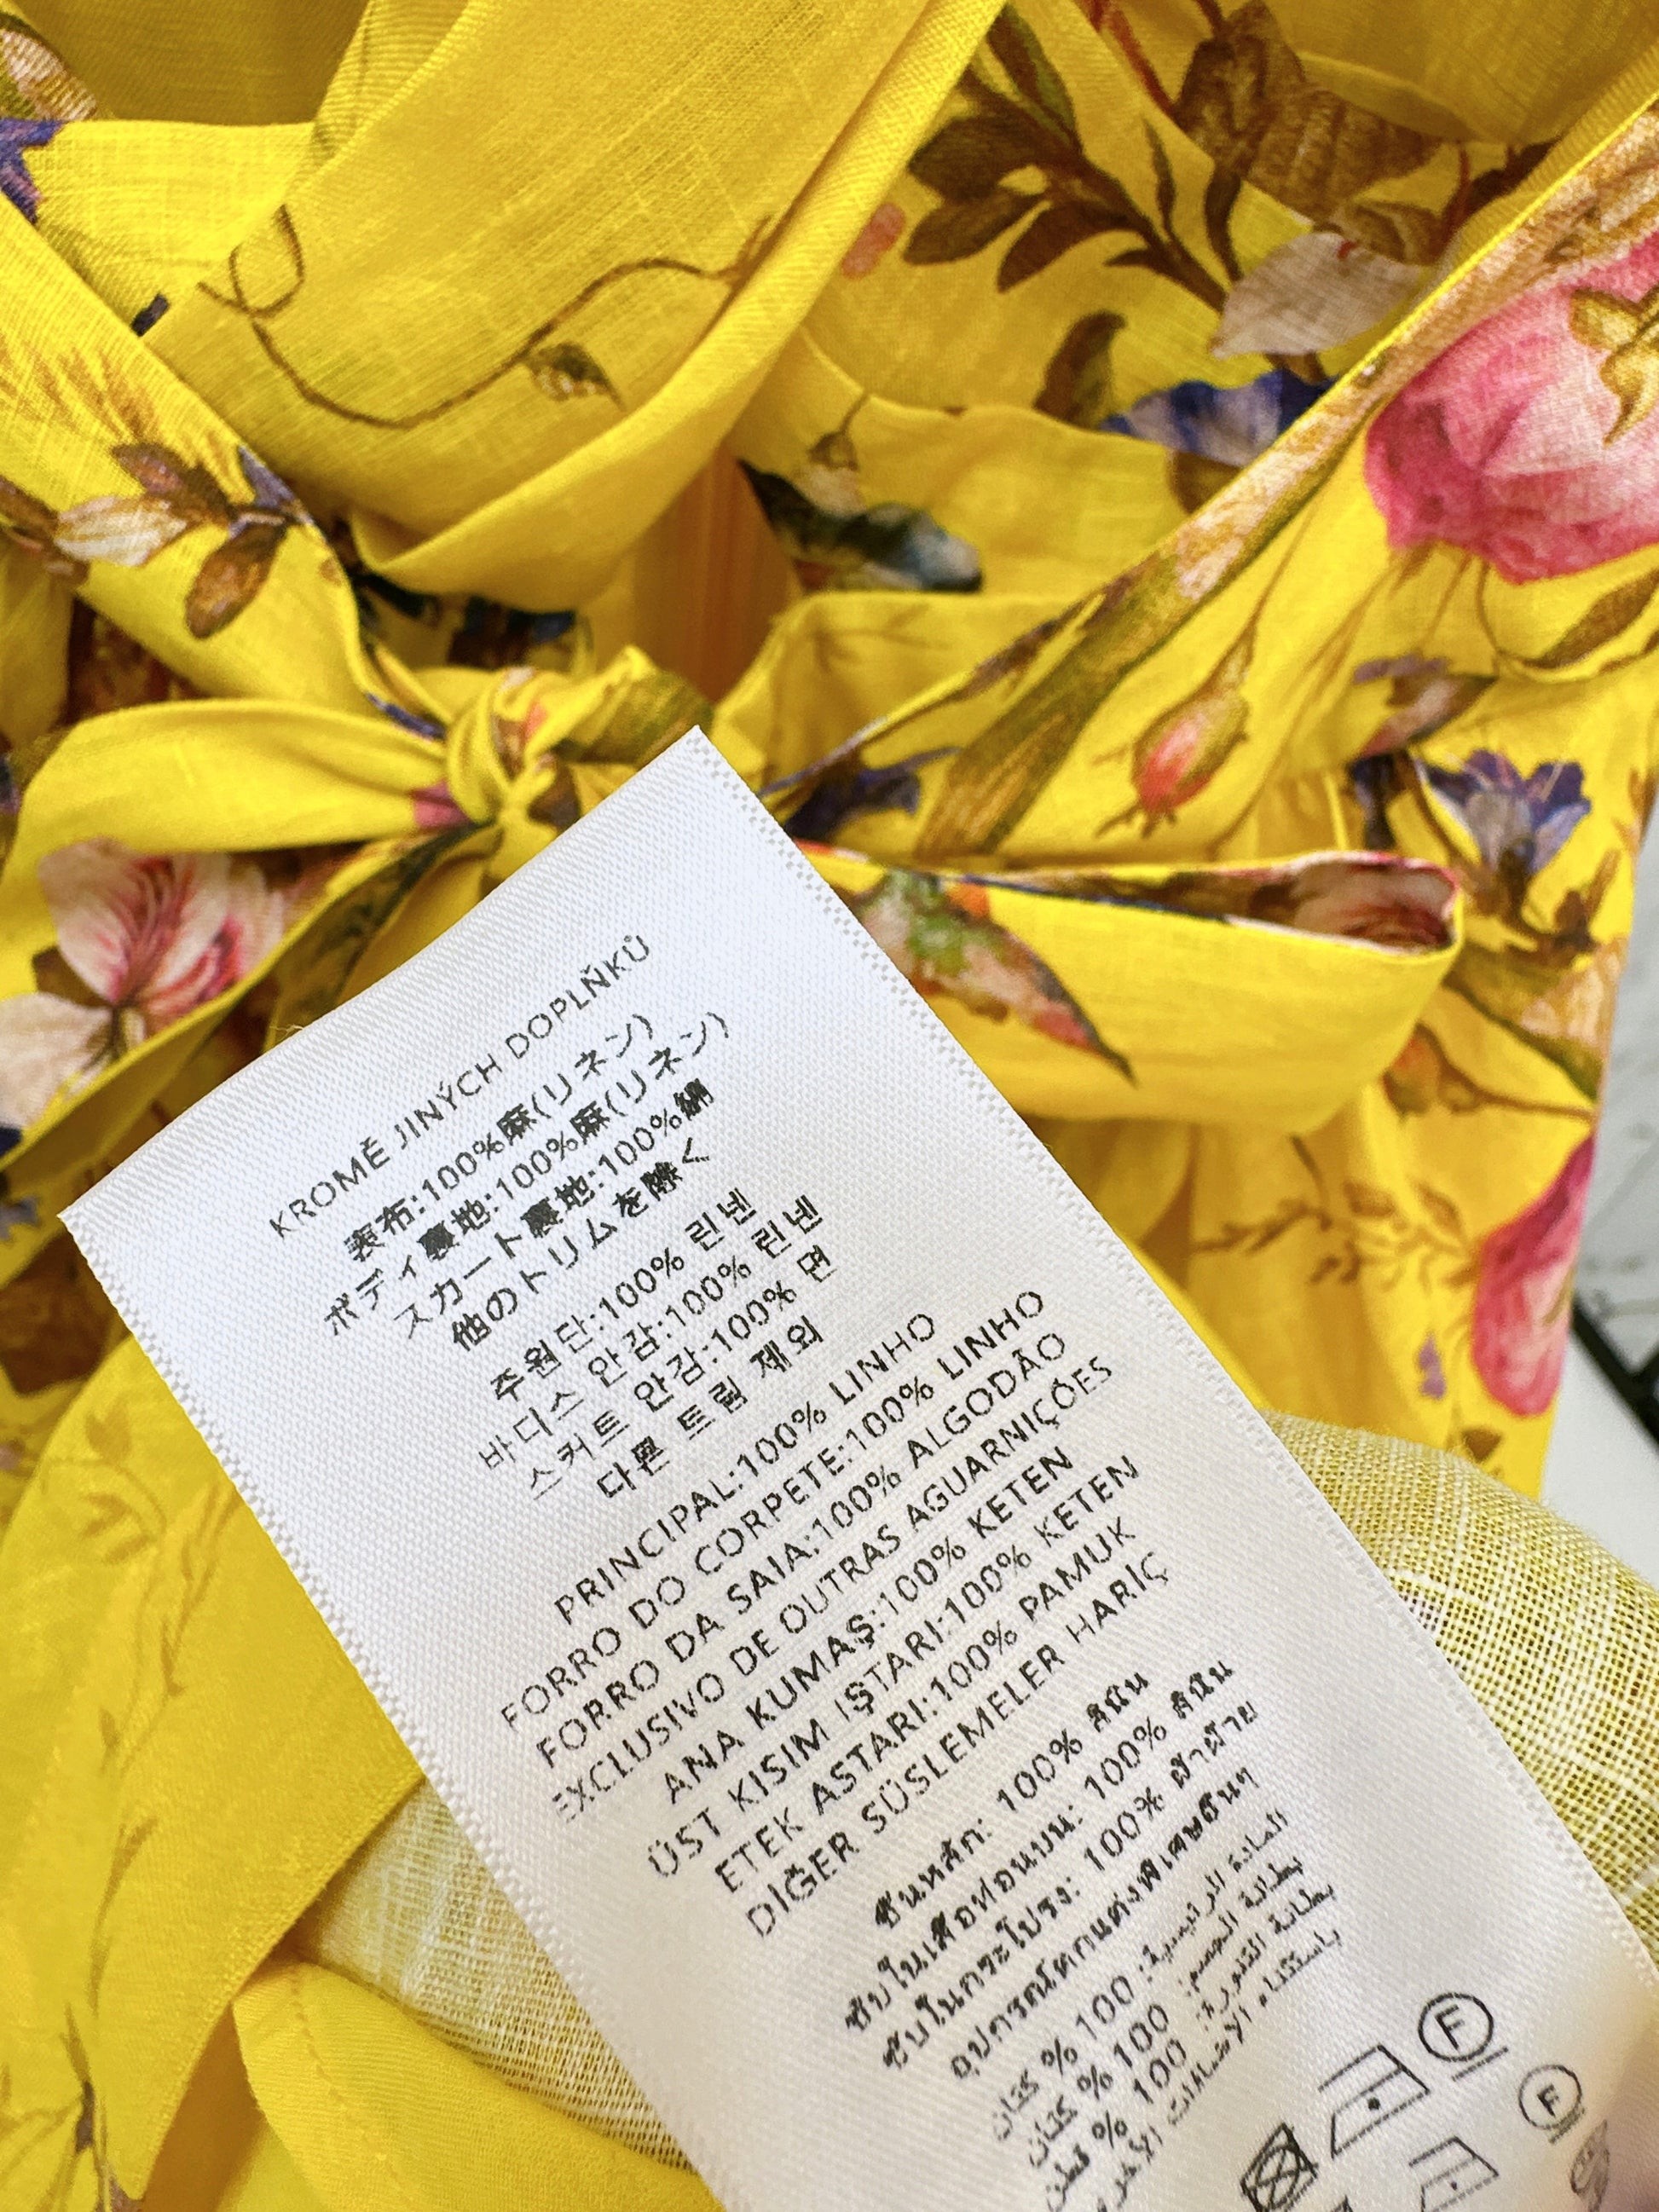 KROMĚ JINÝCH DOPLŇKŮ
表布:100%麻(リネン)
ボディ裏地:100%麻(リネン)
スカート裏地:100%綿
他のトリムを除く
주원단:100% 린넨
바디스 안감:100% 린넨
스커트 안감:100% 면
다른 트림 제외
PRINCIPAL:100% LINHO
FORRO DO CORPETE:100% LINHO
FORRO DA SAIA:100% ALGODÃO
EXCLUSIVO DE OUTRAS AGUARNIÇÕES
ANA KUMAŞ:100% KETEN
ÜST KISIM IŞTARI:100% KETEN
ETEK ASTARI:100% PAMUK
DİĞER SÜSLEMELER HARİÇ
ชั้นหลัก: 100% ลินิน
ซับในเสื้อท่อนบน: 100% ลินิน
ซับในกระโปรง: 100% ผ้าฝ้าย
อุปกรณ์ตกแต่งพิเศษอื่นๆ
المادة الرئيسية: 100 % كتان
بطانة الجسم: 100 % كتان
بطانة التنورة: 100 % قطن
باستثناء الإضافات الأخرى
F
F